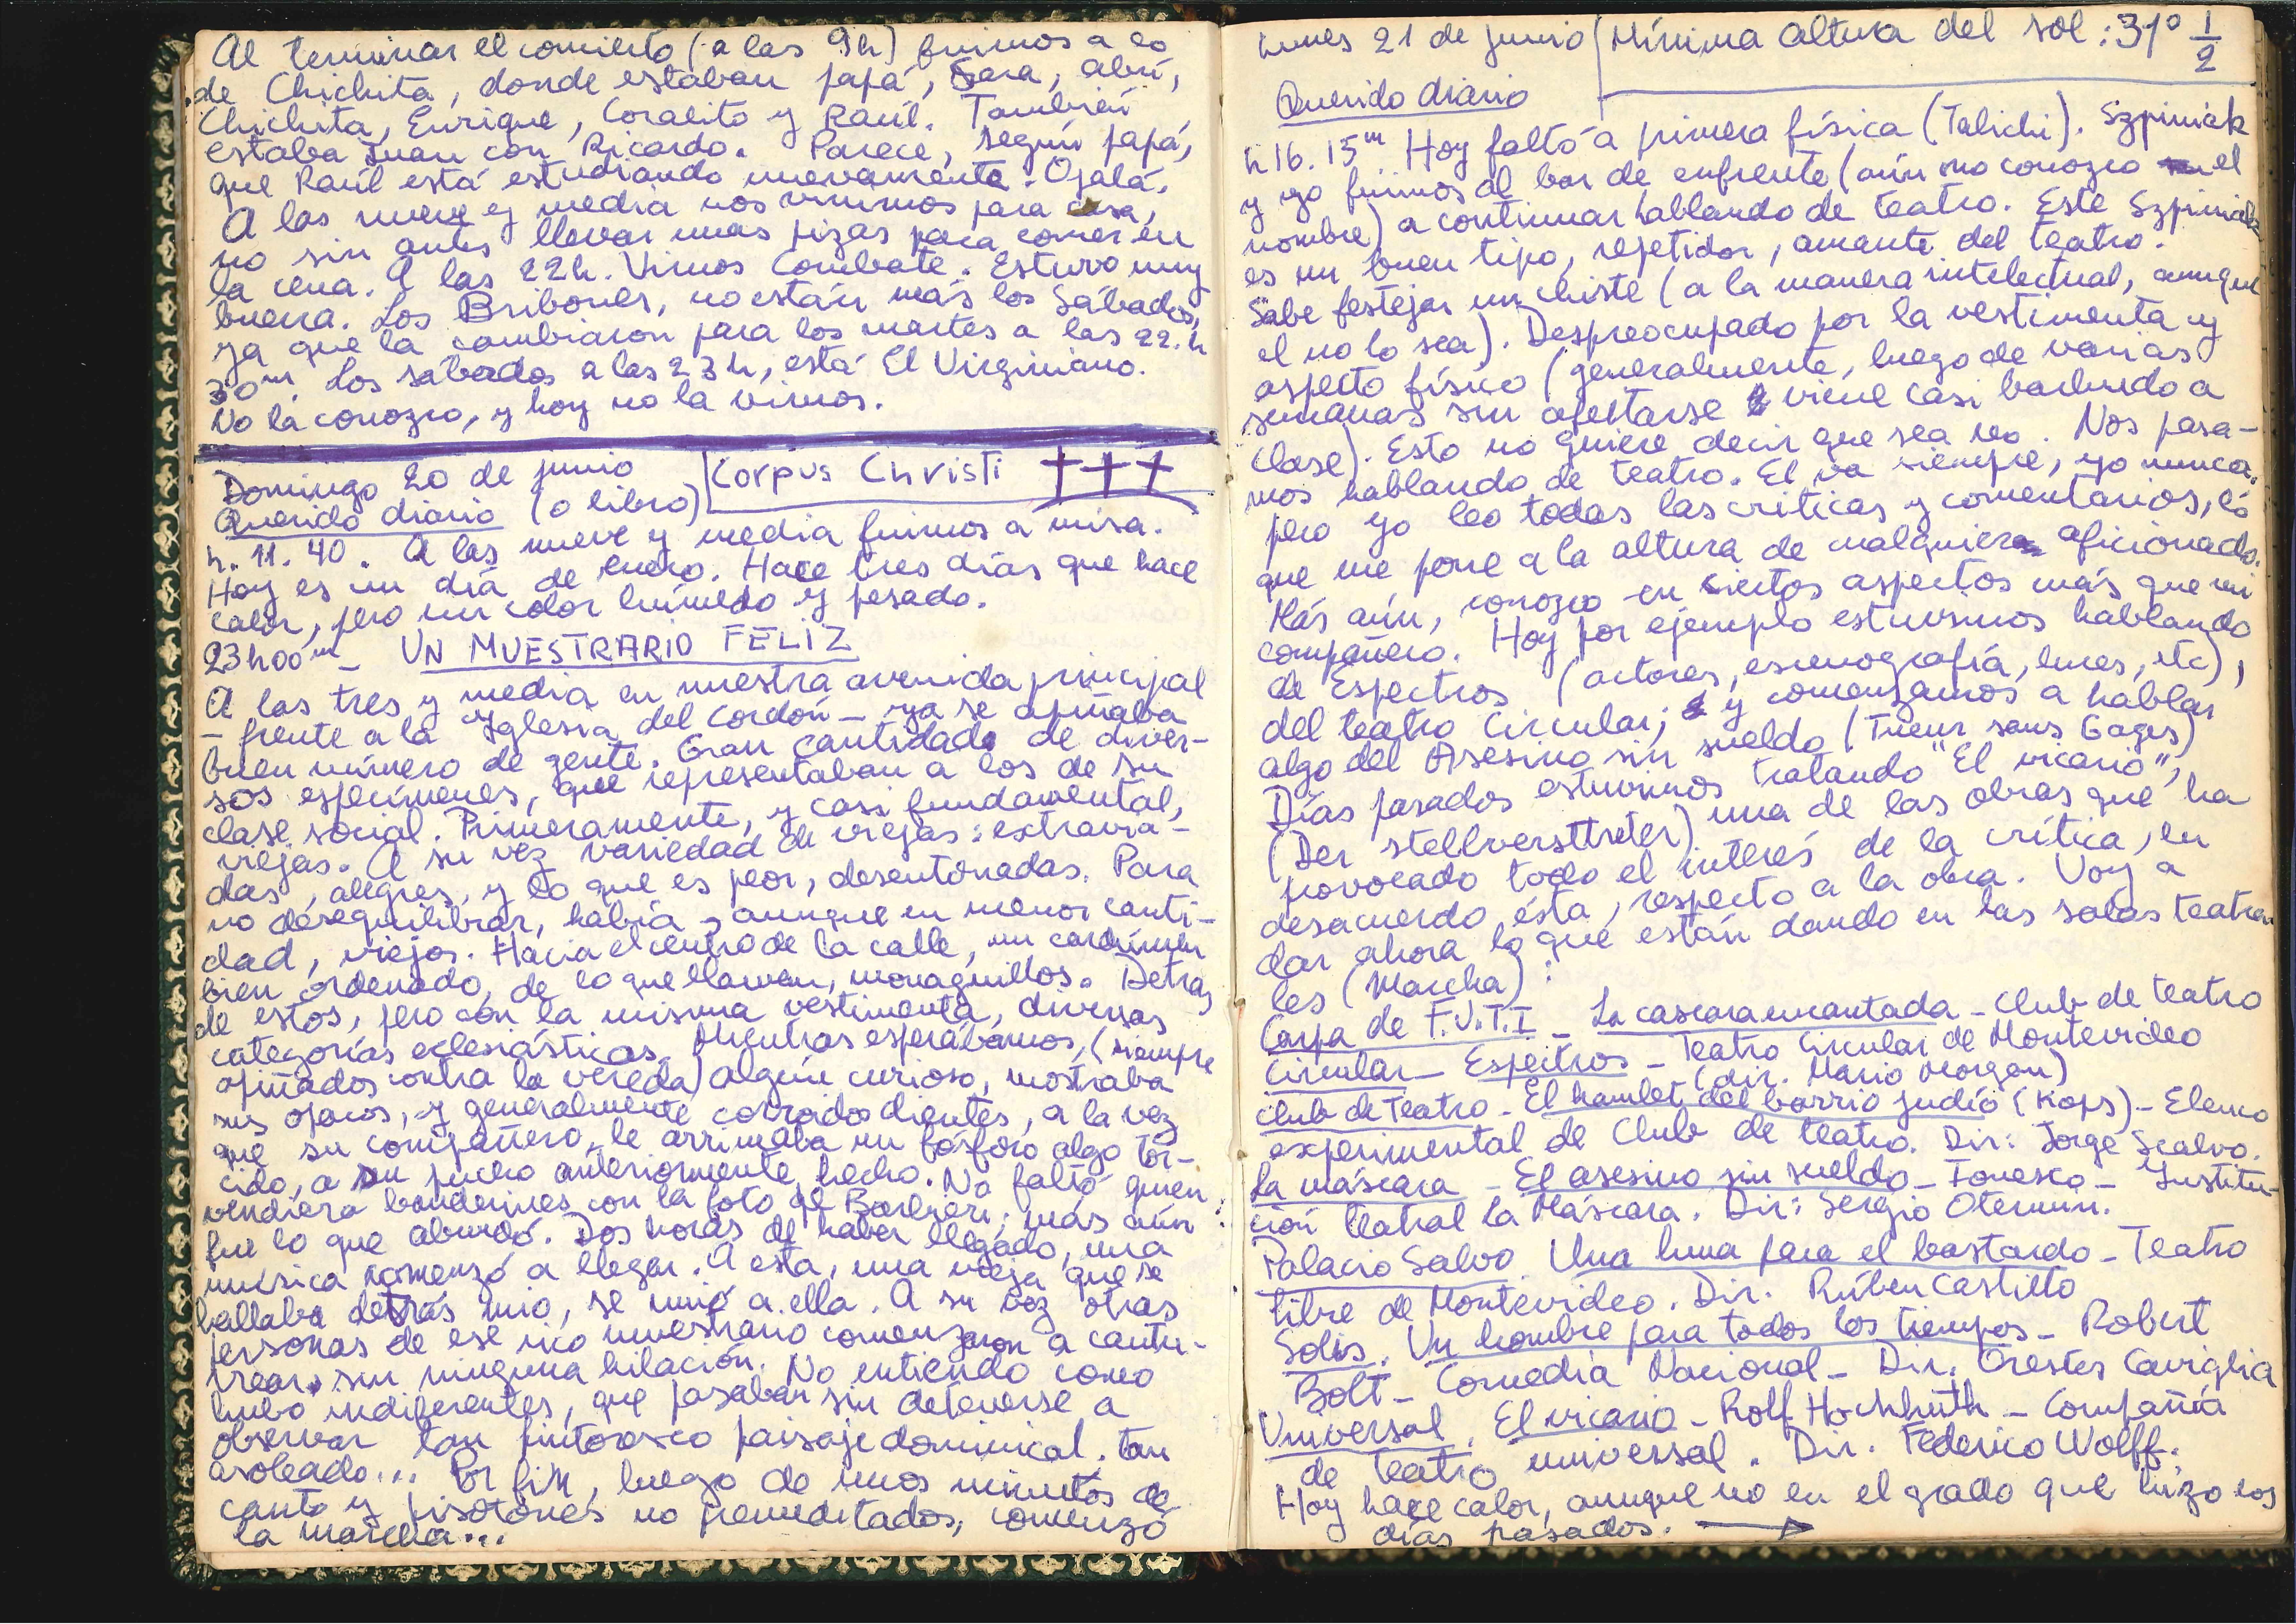 Al terminar el concierto (a las 9h) fuimos a lo
de Chichita, donde estaban papá, Sara, abrí,
Chichita, Enrique, Coralito y Raúl. También
estaba Juan con Ricardo. Parece, según papá,
que Raúl está estudiando nuevamente. Ojalá.
A las nueve y media nos vinimos para casa,
no sin antes llevar unas pizas para comer en
la cena. A las 22h. Vimos Combate. Estuvo muy
buena. Los Bribones, no están más los Sábados,
ya que la cambiaron para los martes a las 22.h
30m. Los sábados a las 23h, está El Virginiano.
No la conozco, y hoy no la vimos.
Domingo 20 de junio
Corpus Christi
Querido diario (o libro)
h. 11. 40. A las nueve y media fuimos a misa.
Hoy es un día de enero. Hace tres días que hace
calor, pero un color húmedo y pesado.
23h00m - UN MUESTRARIO FELIZ
A las tres y media en nuestra avenida principal
- frente a la Yglesia del Cordón - ya se apiñaba
buen número de gente. Gran cantidad de diver-
sos especímenes, que representaban a los de su
clase social. Primeramente, y casi fundamental,
viejas. A su vez variedad de viejas: extravia-
das, alegres, y lo que es peor, desentonadas. Para
no desequilibrar, había, aunque en menor canti-
dad, viejos. Hacia el centro de la calle, un cardúmen
bien ordenado, de lo que llaman, monaguillos. Detrás
de estos, pero con la misma vestimenta, diversas
categorías eclesiásticas. Mientras esperábamos, (siempre
apiñados contra la vereda) algún curioso, mostraba
sus opacos, y generalmente corroidos dientes, a la vez
que su compañero, le arrimaba un fósforo algo tor-
cido, a su pucho anteriormente hecho. No faltó quien
vendiera banderines con la foto de Barbieri; más aún
fue lo que abundó. Dos horas de haber llegado, una
música comenzó a llegar. A esta, una vieja que se
hallaba detrás mio, se unió a ella. A su vez otras
personas de ese rico muestrario comenzaron a cantu-
rrear, sin ninguna hilación. No entiendo como
hubo indiferentes, que pasaban sin detenerse a
observar tan pintoresco paisaje dominical, tan
asoleado... Por fin, luego de unos minutos de
canto y pisotones no premeditados, comenzó
la marcha...
Lunes 21 de junio
Mínima altura del sol: 31° 1/2
Querido diario
h 16. 15m Hoy faltó a primera física (Talichi). Szpiniak
y yo fuimos al bar de enfrente (aún no conozco el
nombre) a continuar hablando de teatro. Este Szpiniak
es un buen tipo, repetidor, amante del teatro.
Sabe festejar un chiste (a la manera intelectual, aunque
el no lo sea). Despreocupado por la vestimenta y
aspecto físico (generalmente, luego de varias
semanas sin afeitarse viene casi barbudo a
clase). Esto no quiere decir que sea reo. Nos pasa-
mos hablando de teatro. El va siempre, yo nunca,
pero yo leo todas las críticas y comentarios, lo
que me pone a la altura de cualquier aficionado.
Más aún, conozco en ciertos aspectos más que mi
compañero. Hoy por ejemplo estuvimos hablando
de Espectros (actores, escenografía, luces, etc),
del teatro Circular; y comenzamos a hablar
algo del Asesino sin sueldo (Tueur sans Gages)
Días pasados estuvimos tratando "El vicario",
(Der stellversttreter) una de las obras que ha
provocado todo el interés de la crítica, en
desacuerdo ésta, respecto a la obra. Voy a
dar ahora lo que están dando en las salas teatra
les (Marcha):
Carpa de F.U.T.I - La cascara encantada - Club de teatro
Circular - Espectros - Teatro Circular de Montevideo
(dir. Mario Morgan)
Club de Teatro - El hamlet del barrio judío (Kops) - Elenco
experimental de Club de teatro. Dir: Jorge Scalvo.
La máscara - El asesino sin sueldo - Ionesco - Institu-
ción teatral la Máscara. Dir: Sergio Otermin.
Palacio Salvo Una luna para el bastardo - Teatro
libre de Montevideo. Dir. Rúben Castillo
Solís. Un hombre para todos los tiempos - Robert
Bolt - Comedia Nacional - Dir. Orestes Caviglia
Universal. El vicario - Rolf Hochhuth - Compañía
de teatro universal. Dir. Federico Wolff.
Hoy hace calor, aunque no en el grado que hizo los
días pasados. →